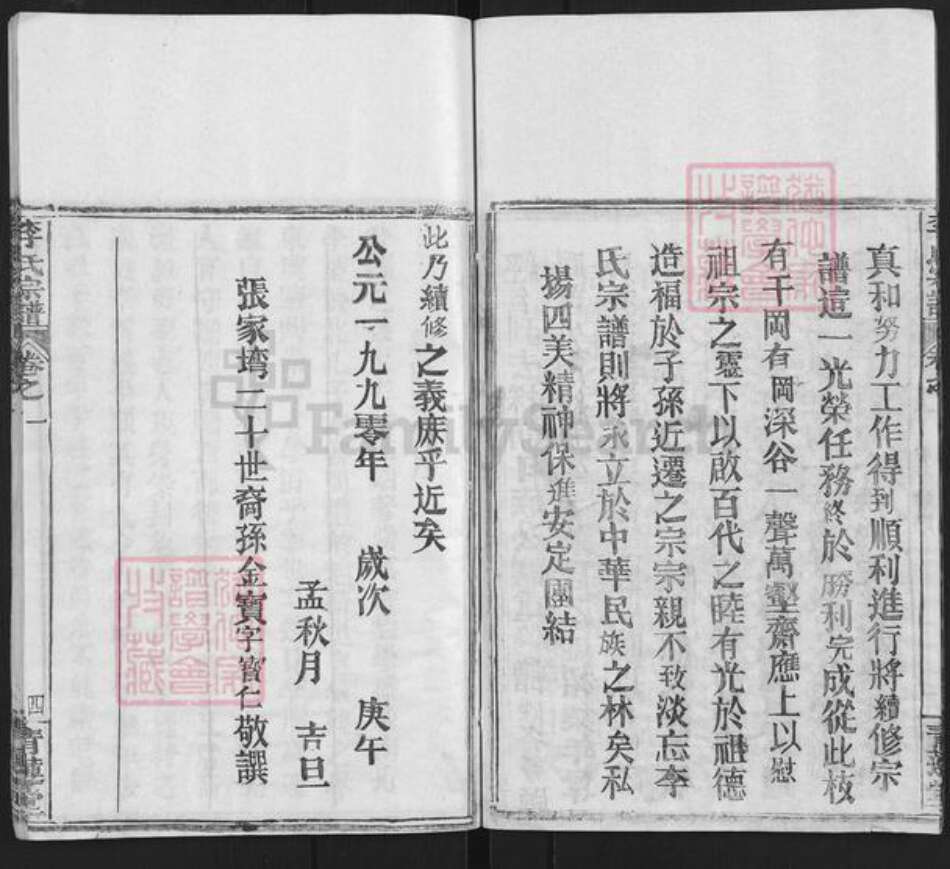 真和努力工作得到順利進行將續修宗
譜這一光榮任務終於勝利完成從此枝
有千岡有岡深谷一聲萬壑齋應上以慰
祖宗之靈下以啟百代之睦有光於祖德
造福於子孫近遷之宗宗親不致淡忘李
氏宗譜則將永立於中華民族之林矣私
揚四美精神保進安定團結
此乃續修之義庶乎近矣
公元一九九零年 歲次 庚午
孟秋月 吉旦
張家塆二十世裔孫金寶字寶仁敬譔
李氏宗譜 卷之一 四 青蓮堂
FamilySearch